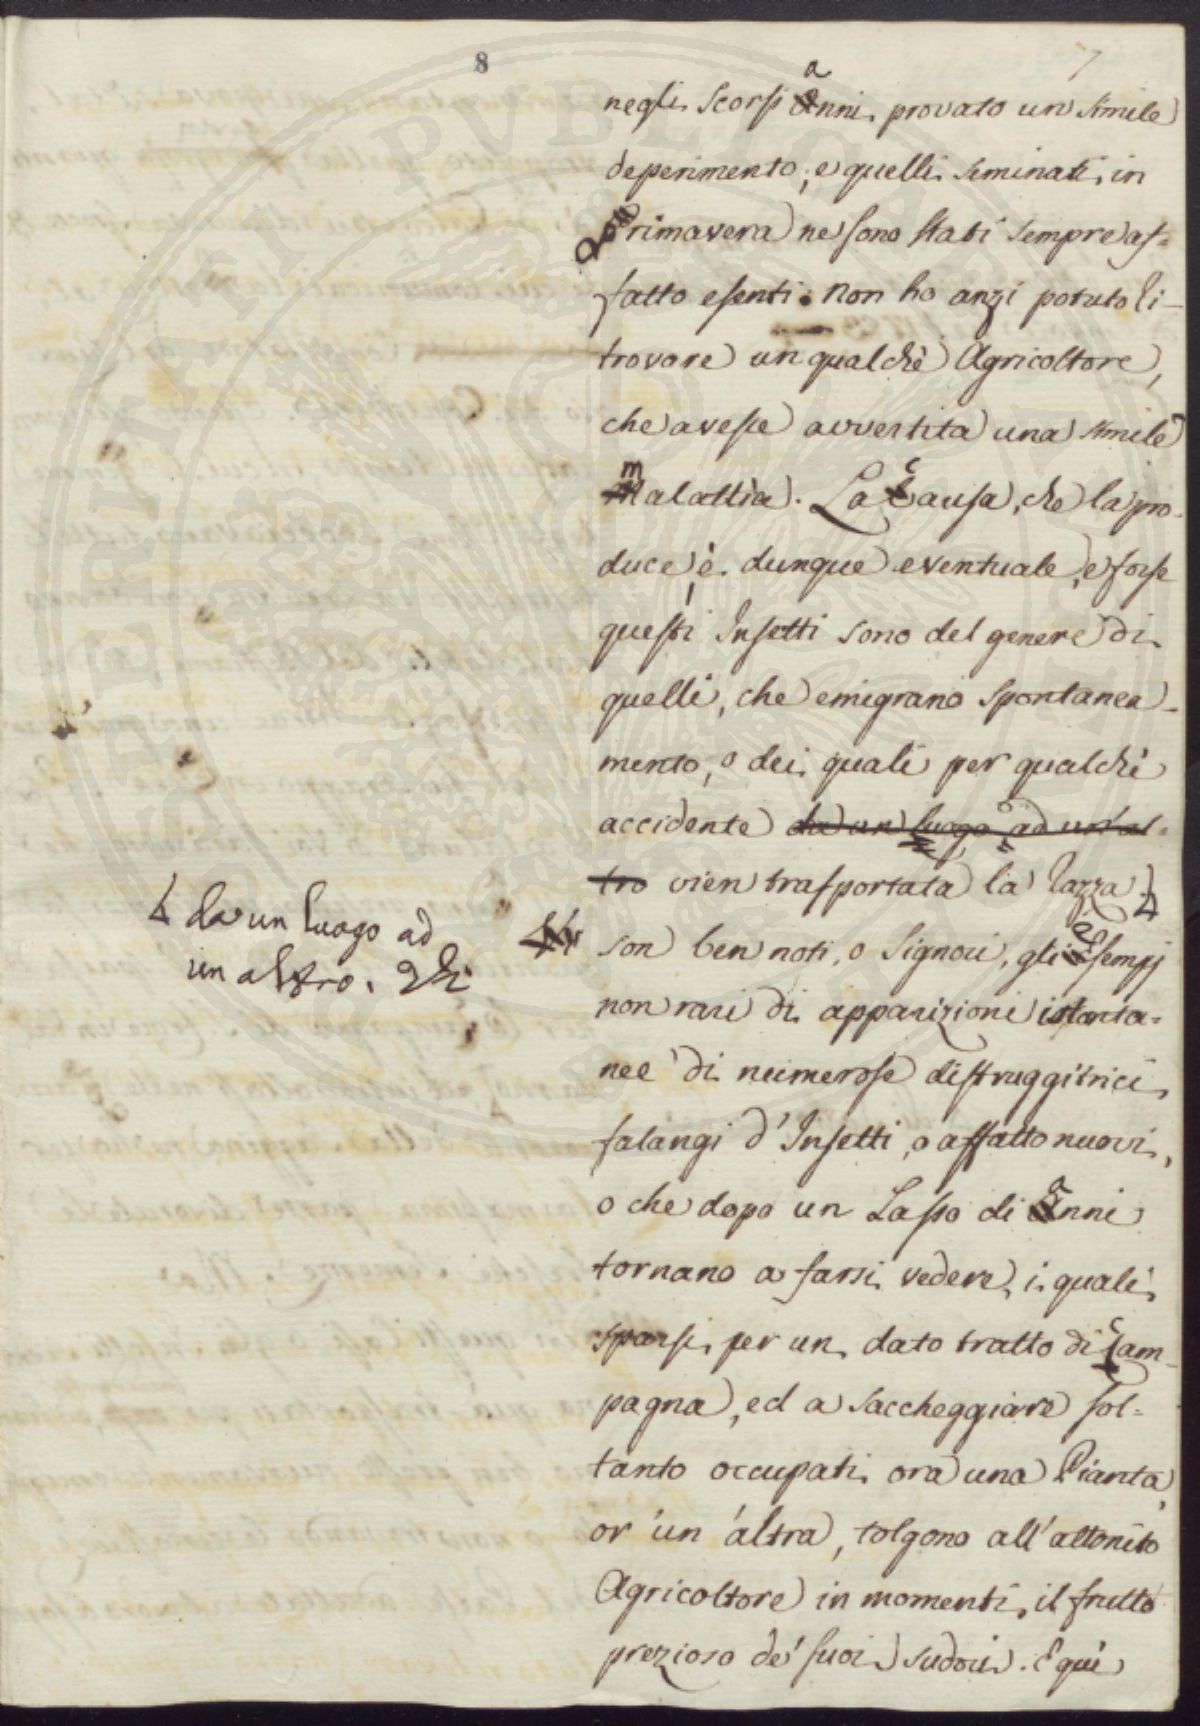 8
7
negli scorsi anni provato un simile
deperimento; e quelli seminati in
Primavera ne sono stati sempre af-
fatto esenti. Non ho anzi potuto ri-
trovare un qualche Agricoltore,
che avesse avvertita una simile
malattia. La causa, che la pro-
duce, è dunque eventuale, e forse
questi Insetti sono del genere di
quelli, che emigrano spontanea-
mente, o dei quali per qualche
accidente da un luogo ad un'al-
tro vien trasportata la razza.
da un luogo ad
un altro. Vi
son ben noti, o Signori, gli esempj
non rari di apparizioni istanta-
nee di numerose distruggitrici
falangi d'Insetti, o affatto nuovi,
o che dopo un Lasso di anni
tornano a farsi vedere, i quali
sparsi per un dato tratto di cam-
pagna, ed a saccheggiare sol-
tanto occupati ora una Pianta,
or un'altra, tolgono all'attonito
Agricoltore in momenti il frutto
prezioso de' suoi sudori. E quì